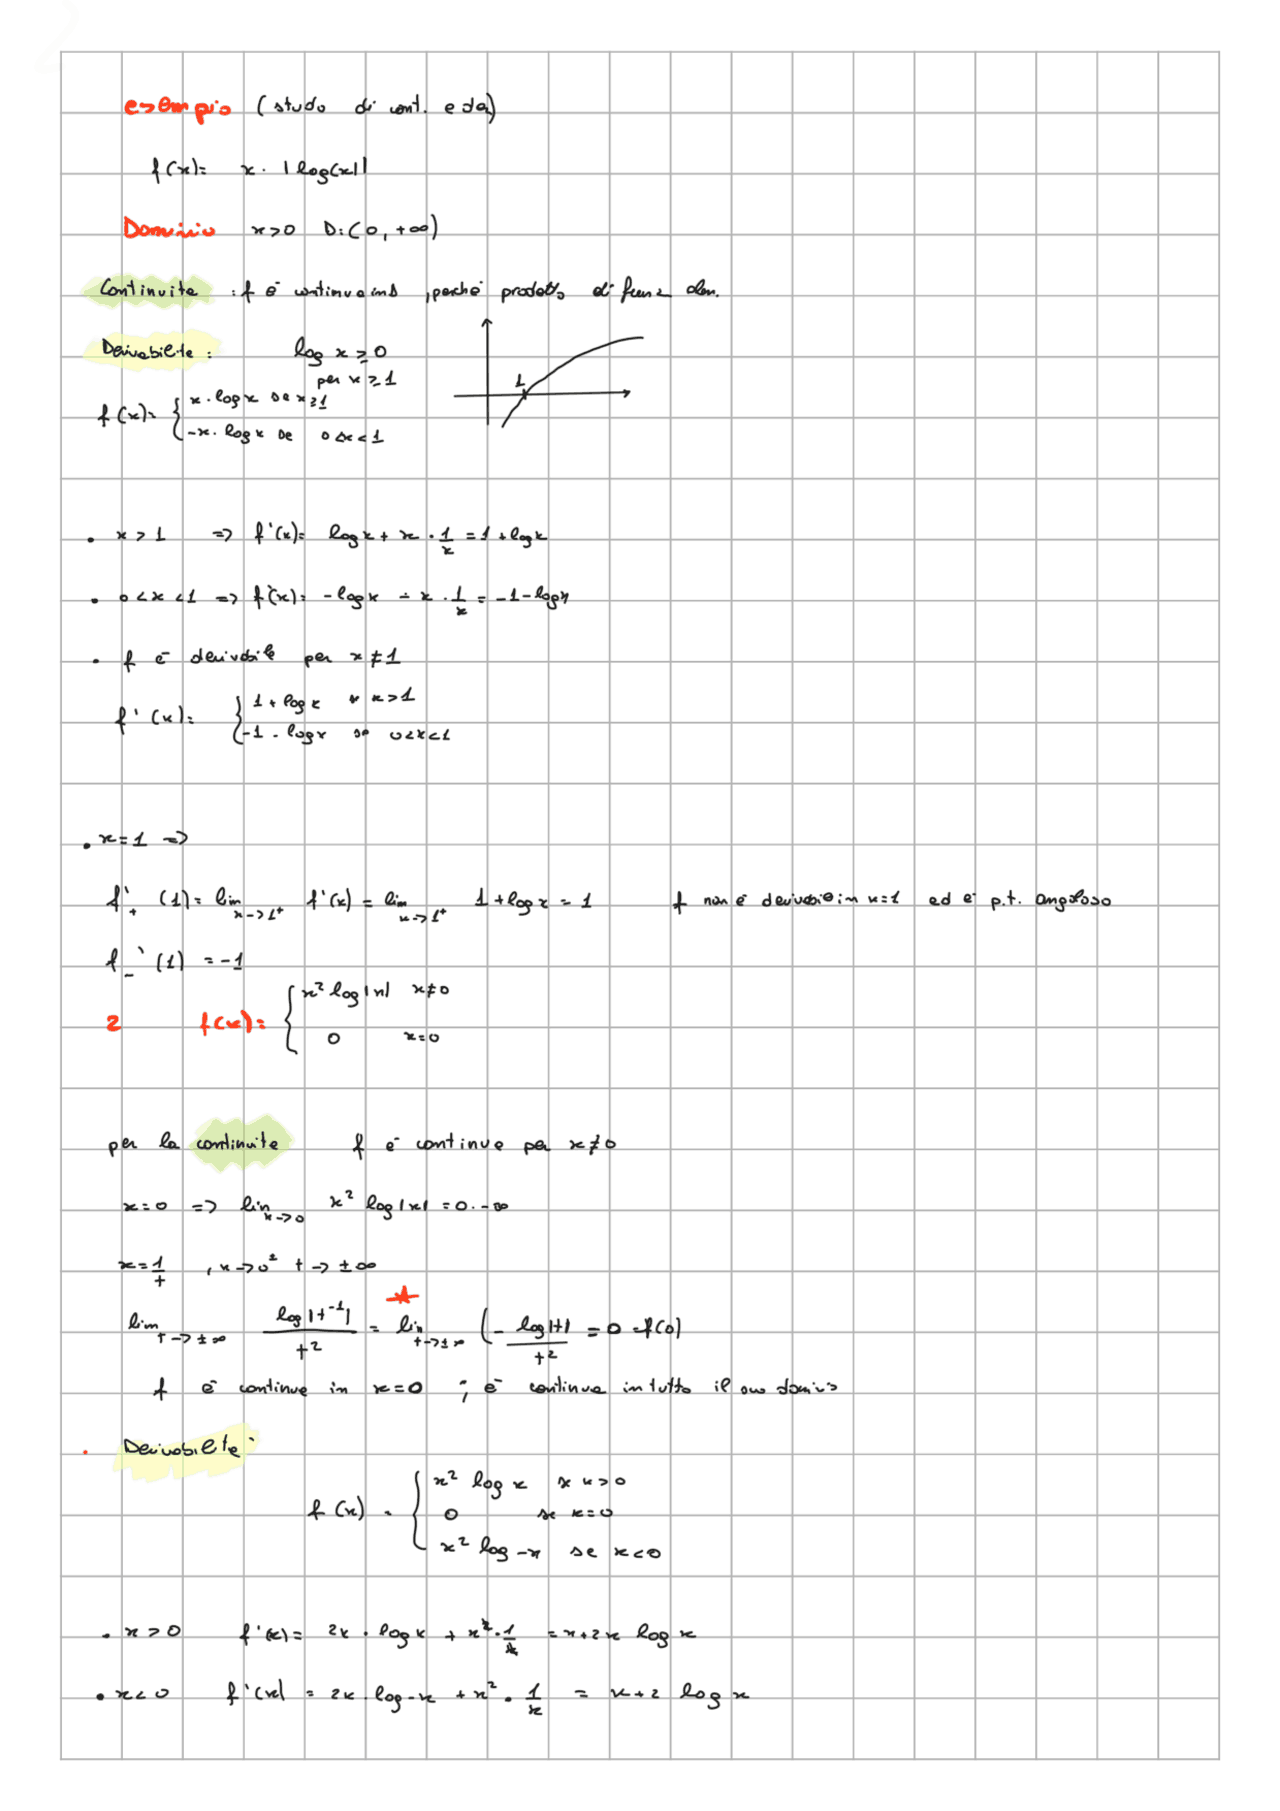 esempio (studo di cont. e der)
f(x)= x · |log(x)|
Dominio x>0 D:(0, +∞)
Continuità : f è continua in D , perché prodotto di funz elem.
Derivabilità : log x ≥ 0
per x ≥ 1
1
f(x)= { x · log x se x≥1
-x · log x se 0<x<1
• x > 1 => f'(x)= log x + x · 1/x = 1 + log x
• 0<x<1 => f'(x)= -log x - x · 1/x = -1 - log x
• f è derivabile per x ≠ 1
f'(x)= { 1 + log x se x>1
-1 - log x se 0<x<1
• x=1 =>
f'₊ (1) = lim x->1⁺ f'(x) = lim x->1⁺ 1 + log x = 1 f non è derivabile in x=1 ed è p.t. angoloso
f₋' (1) = -1
2 f(x)= { x² log|x| x≠0
0 x=0
per la continuità f è continua per x≠0
x=0 => lim x->0 x² log|x| = 0 · -∞
x = 1/t , x->0± t -> ±∞
lim t->±∞ log|t⁻¹| / t² = lim t->±∞ (- log|t| / t² = 0 = f(0)
f è continua in x=0 ; è continua in tutto il suo dominio
• Derivabilità
f(x) = { x² log x se x>0
0 se x=0
x² log -x se x<0
• x > 0 f'(x)= 2x · log x + x² · 1/x = x+2x log x
• x<0 f'(x) = 2x log -x + x² · 1/x = x+2 log x